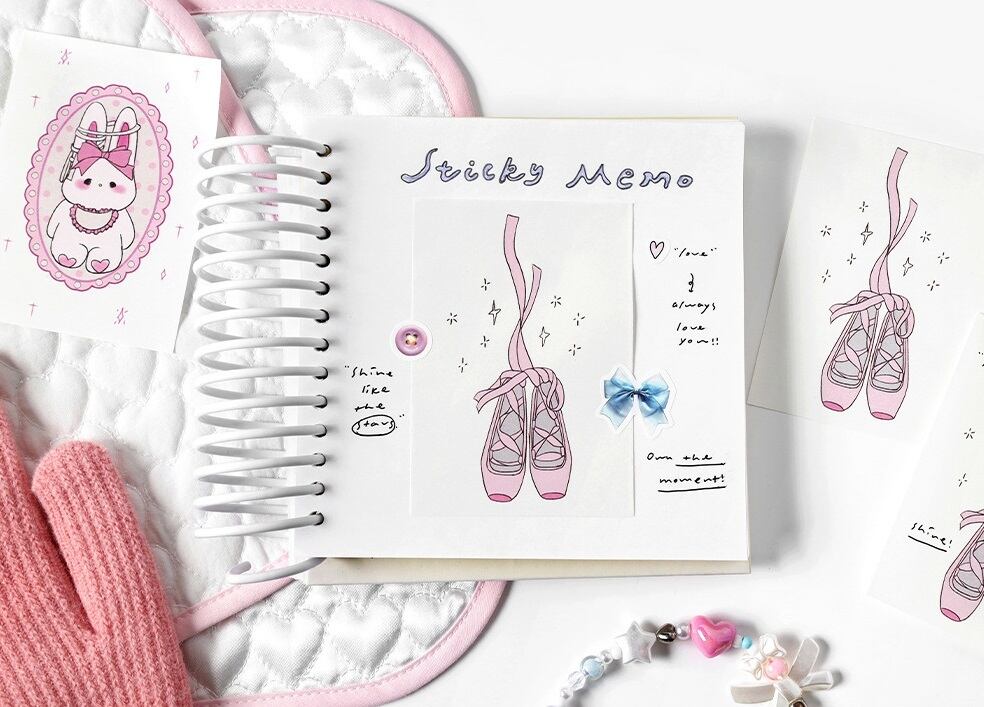 Sticky Memo
"love"
always
love
you!!
"Shine
like
the
stars"
Own the
moment!
Shine!